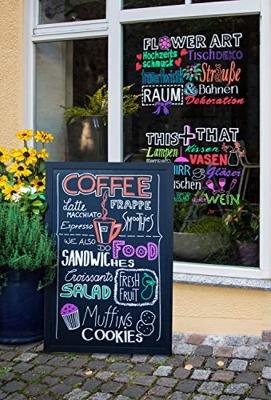 FLOWER ART
Hochzeits TISCHDEKO
schmuck
Trauerfloristik Sträuße
RAUM & Bühnen
Dekoration
THIS + THAT
Lampen Kissen
VASEN
Gläser
WEIN
COFFEE
Latte FRAPPE
MACCHIATO
Espresso Smoothies
WE ALSO DO FOOD
SANDWICHES
Croissants FRESH
SALAD FRUIT
Muffins
COOKIES